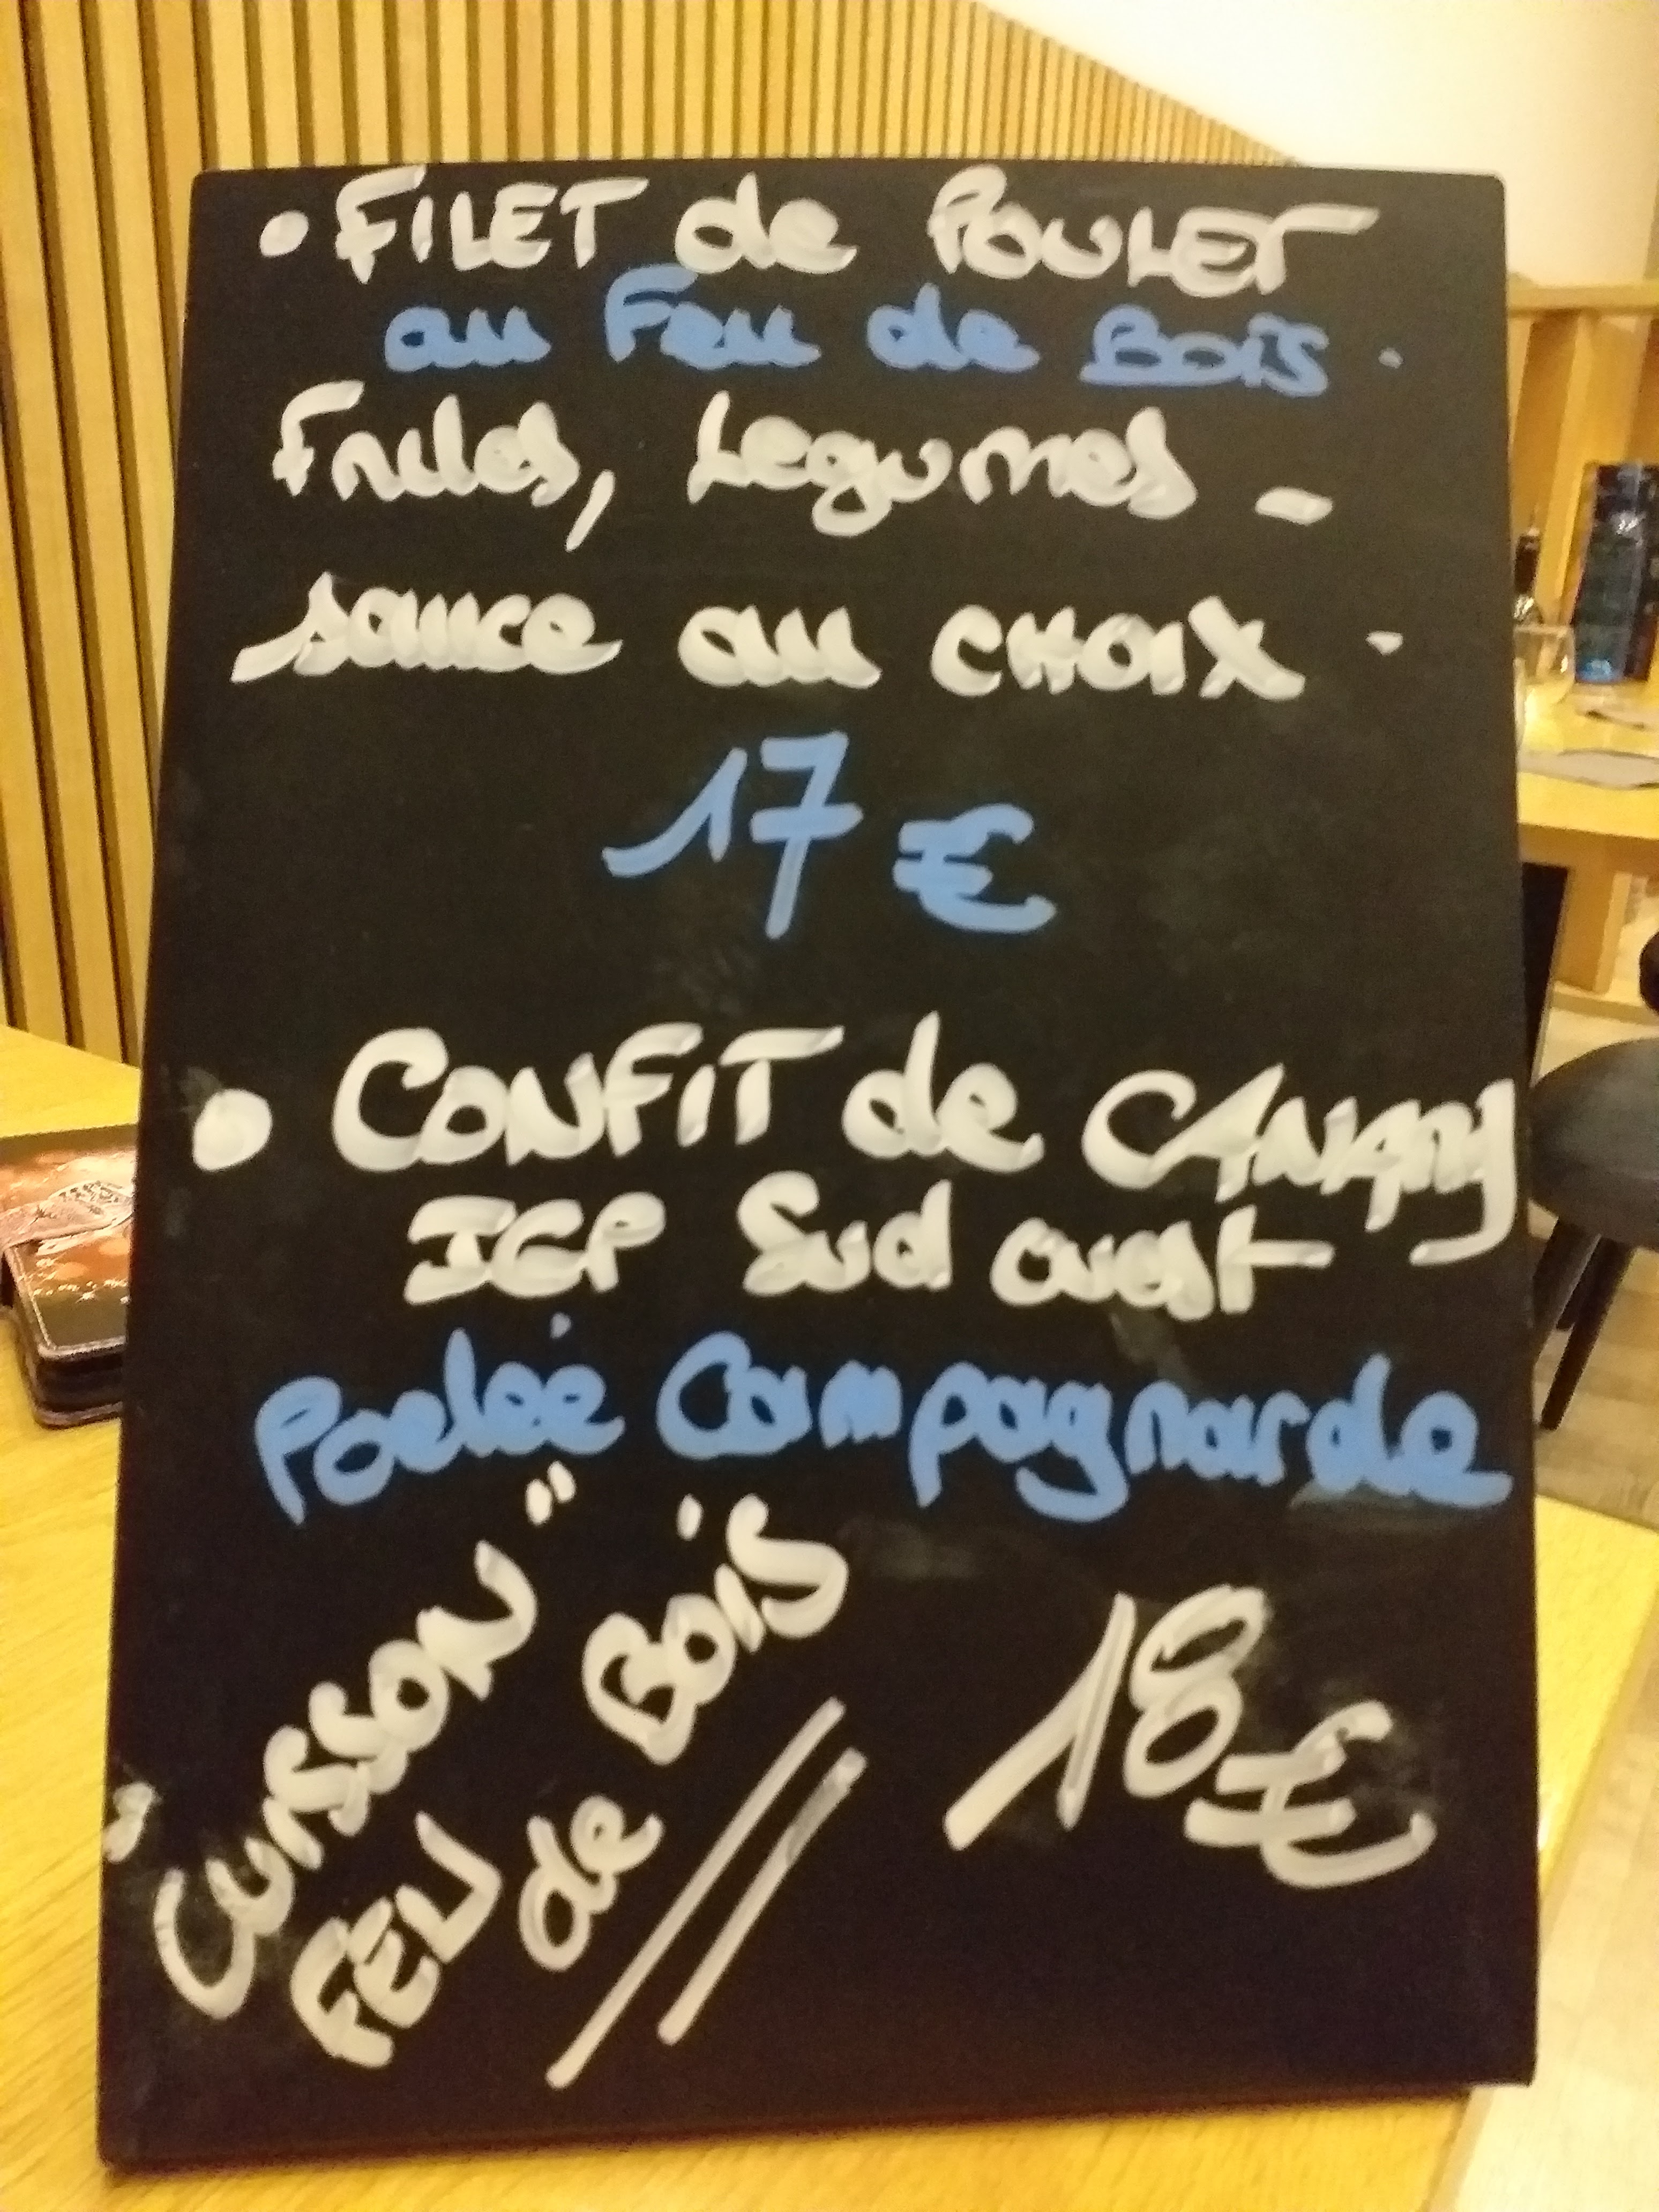 • FILET de POULET
au Feu de Bois.
Frites, Legumes -
sauce au CHOIX.
17 €
• CONFIT de CANARD
IGP Sud ouest
Poelée Campagnarde
"CUISSON"
FEU de BOIS
18€